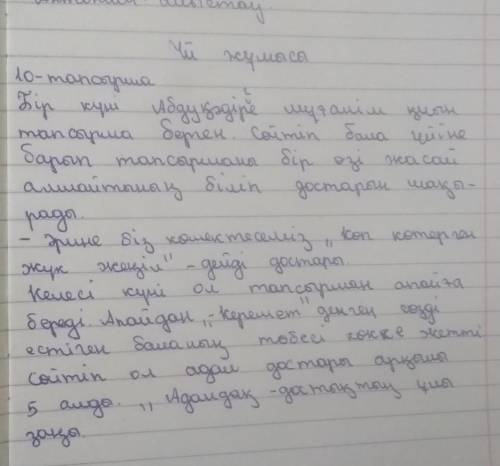 Үй жұмысы
10-тапсырма
Бір күні Абдуқадірге мұғалім қиын
тапсырма берген. Сөйтіп бала үйіне
барып тапсырманы бір өзі жасай
алмайтының біліп достарын шақы-
рады.
- Әрине біз көмектесеміз „Көп көтерген
жүк жеңіл" - дейді достары.
Келесі күні ол тапсырман апайға
береді. Апайдан „- Керемет" деген сөзді
естіген баланың төбесі көкке жетті
Сөйтіп ол адал достары арқылы
5 алды. „ Адалдақ - достықтың ұлы
заңы.